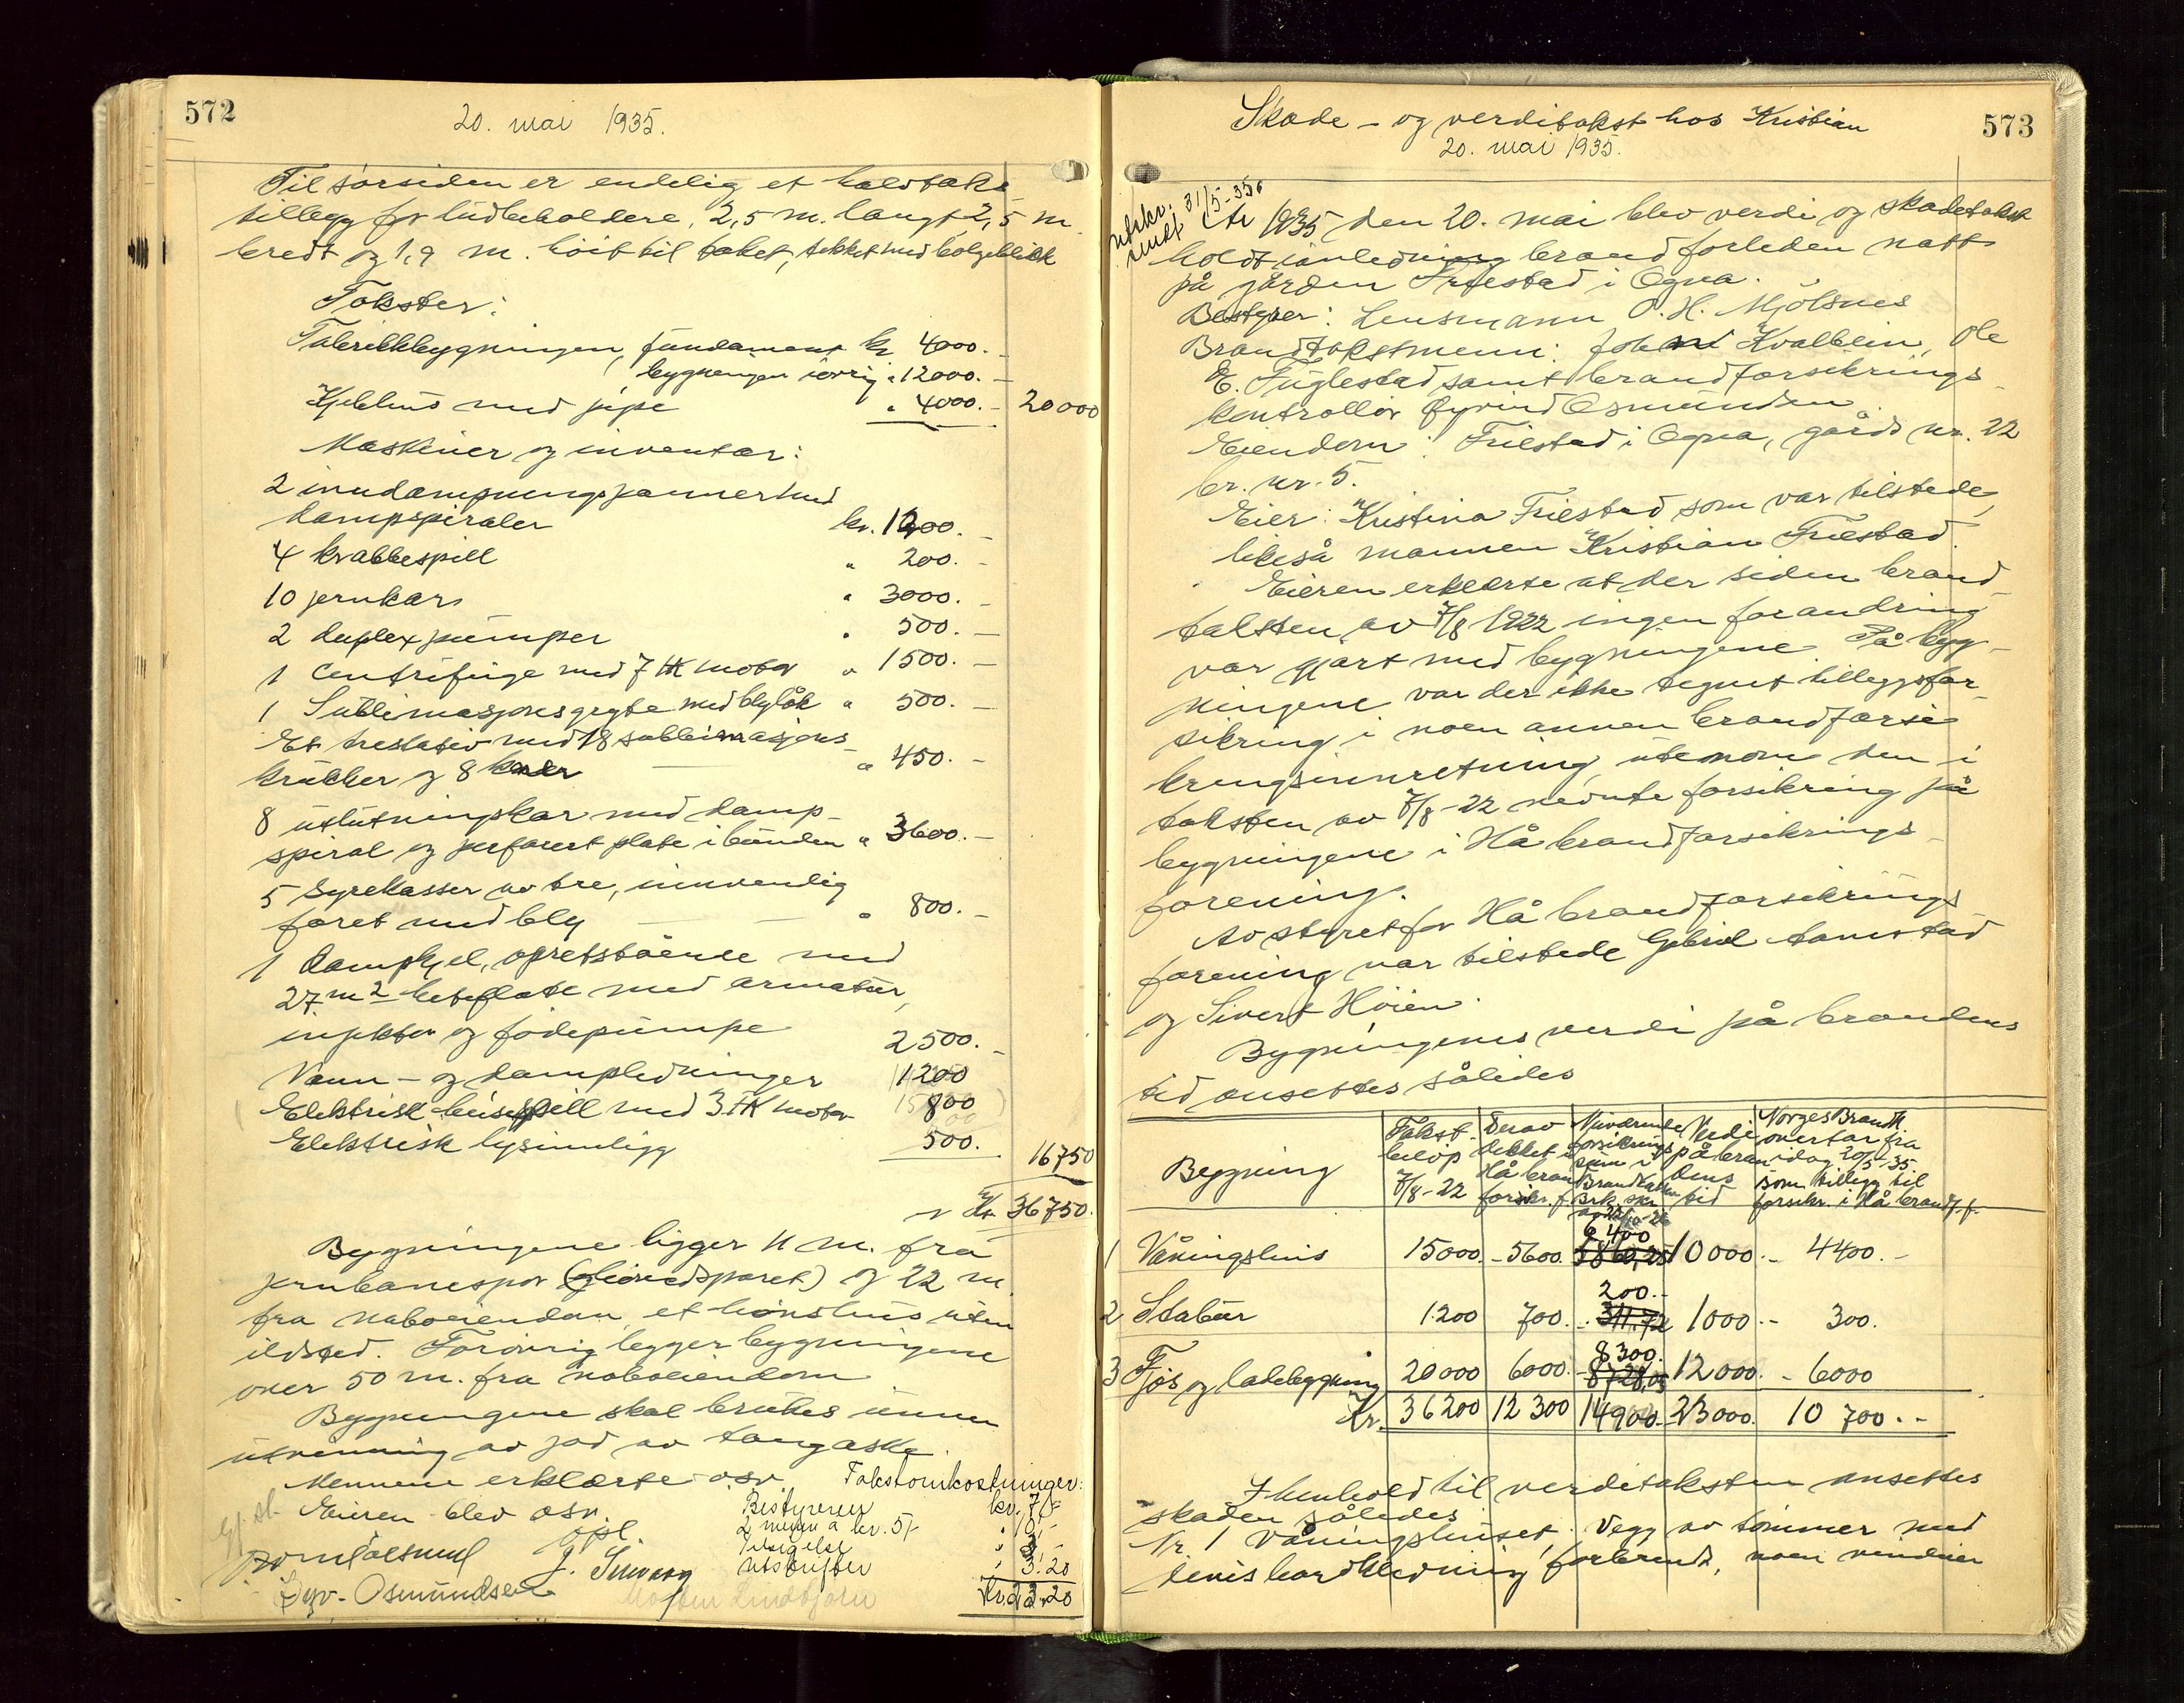 572
20. mai 1935.
Til sørsiden er endelig et halvtaks
tillegg for lutbeholdere, 2,5 m. langt 2,5 m.
bredt og 1,9 m. høit til taket, tekket med bølgeblikk
Takster:
Fabrikkbygningen, fundament kr 4000.-
bygningen iøvrig " 12000.-
Kjelehus med pipe " 4000.- 20000
Maskiner og inventar:
2 inndampningspanner med
dampspiraler kr. 1200.-
4 krabbespill " 200.-
10 jernkar " 3000.-
2 duplexpumper " 500.-
1 Centrifuge med 7 HK motor " 1500.-
1 Sublimasjonsgryte med blylåk " 500.-
Et trestativ med 18 sublimasjons-
krukker og 8 " 450.-
8 utlutningskar med damp-
spiral og perforert plate i bunden " 3600.-
5 Syrekasser av tre, innvendig
foret med bly " 800.-
1 Dampkjel, opretstående med
27 m2 heteflate med armatur,
injektor og fødepumpe 2500.-
Vann- og dampledninger 1200
Elektrisk heisespill med 3 HK motor 800
Elektrisk lysinnlegg 500. 16750
Kr 36750.
Bygningene ligger 11 m. fra
jernbanespor og 22 m
fra naboeiendom, et hønshus uten
ildsted. Forøvrig ligger bygningene
over 50 m. fra naboeiendom
Bygningene skal brukes til
utvinning av jod av tangaske.
Mennene erklærte osv.
Eieren blev osv.
Takstomkostninger:
Bestyreren kr. 7,-
2 menn a kr. 5,- " 10,-
Tilsigelse " 3,-
Utskrifter " 3.20
Kr. 23.20
Øyv. Osmundsen
573
Skade- og verditakst hos Kristian
20. mai 1935.
utskr. 31/5-35.
sendt
År 1935 den 20. mai blev verdi og skadetakst
holdt i anledning brand forleden natt
på gården Friestad i Ogna.
Bestyrer: Lensmann O. H. Mjølsnes
Brandtakstmenn: Johan Kvalbein, Ole
E. Fuglestad samt brandforsikrings-
kontrollør Øyvind Osmundsen.
Eiendom: Friestad i Ogna, gårds nr. 22
br. nr. 5.
Eier: Kristina Friestad som var tilstede,
likeså mannen Kristian Friestad.
Eieren erklærte at der siden brand-
taksten av 7/8 1922 ingen forandring
var gjort med bygningene. På byg-
ningene var der ikke tegnet tilleggsfor-
sikring i noen annen brandforsi-
kringsinnretning, utenom den i
taksten av 7/8-22 nevnte forsikring på
bygningene i Hå brandforsikrings-
forening.
Av styret for Hå brandforsikrings
forening var tilstede Gabriel
og Sivert Høien.
Bygningenes verdi på brandens
tid ansettes således
Bygning
Takst-beløp 7/8-22
Derav dekket i Hå brandforsikr. f.
Nuværende forsikringssum i Brandkassen Brk. skr. av 22/10-26
Verdi på brandens tid
Norges Brandk. overtar fra idag 20/5-35. som tillegg til forsikr. i Hå brandf. f.
1 Våningshus 15000.- 5600. 6400 5860,25 10000.- 4400.-
2 Stabur 1.200 700.- 200.- 311.72 1000.- 300.
3 Fjøs og ladebygning 20000 6000. 8300. 8728,03 12000.- 6000
Kr. 36200 12300 14900.- 23000. 10700.-
I henhold til verditaksten ansettes
skaden således
Nr. 1 Våningshuset; Vegg av tømmer med
utvis bordkledning forbrent, noen vinduer